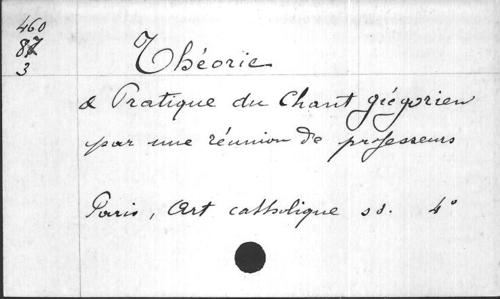 460
87
3
Théorie
& Pratique du Chant grégorien
par une réunion de professeurs
Paris, Art catholique sd. 4°